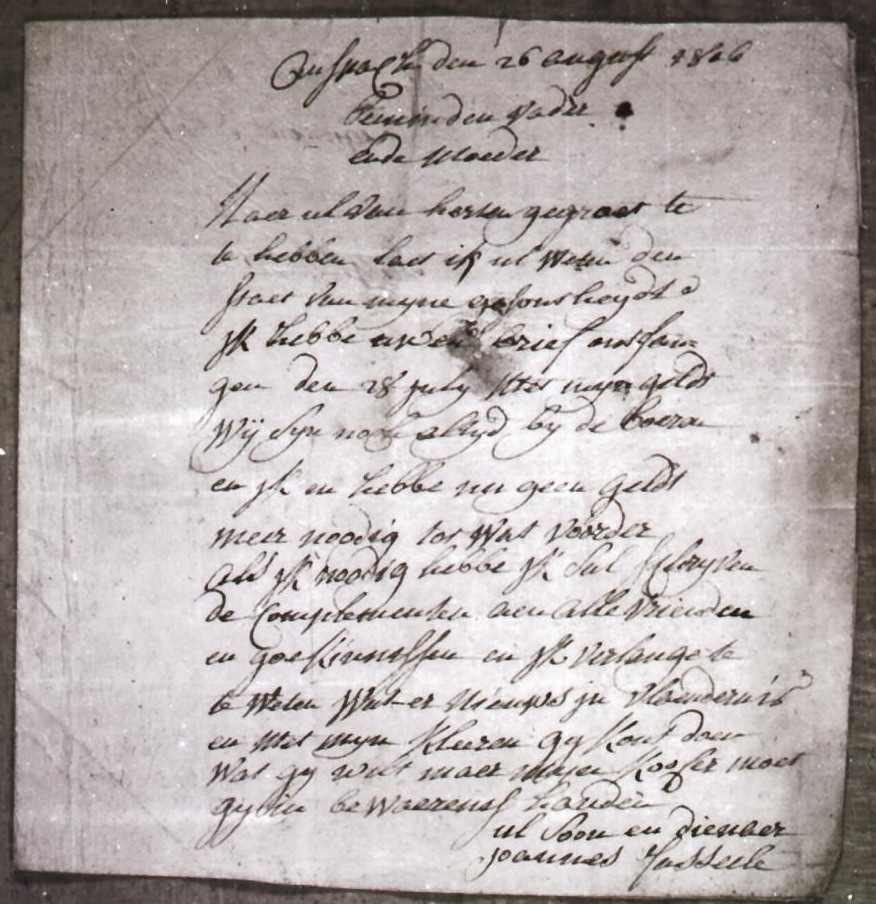 Anspach den 26 august 1806
Beminden vader
ende Moeder
Naer ul van herten gegroet te
te hebben laet ik ul weten den
staet van myne gesontheydt
jk hebbe uwen brief ontfan-
gen den 28 july Met myn geldt
Wij Syn noch altyd by de boeren
en jk en hebbe nu geen geldt
meer noodig tot wat voorder
als jk noodig hebbe jk sal schryven
de Complementen aen alle vrienden
en goe kinnessen en jk verlange te
te weten Wat er Nieuws jn vlaenderen is
en Met myn Kleeren gy kont doen
wat gy wilt maer mynen Koffer moet
gy in bewaerens houden
ul Soon en dienaer
joannes